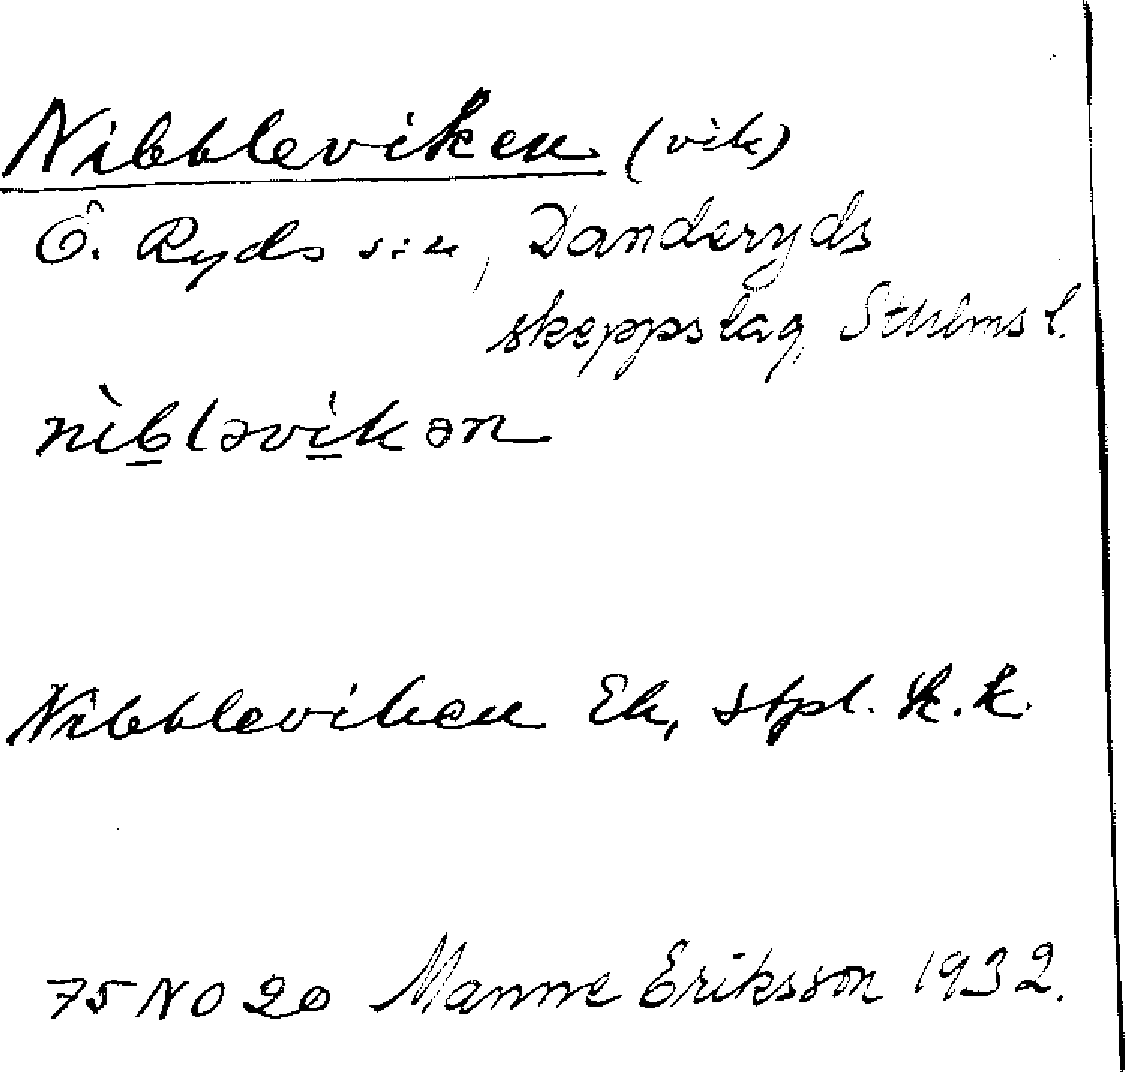 Nibbleviken (vik)
Ö. Ryds sn, Danderyds
skeppslag, Sthlms l.
nìb̲ləvi̲kən
Nibbleviken Ek, stpl. k.k.
75 NO 20 Manne Eriksson 1932.